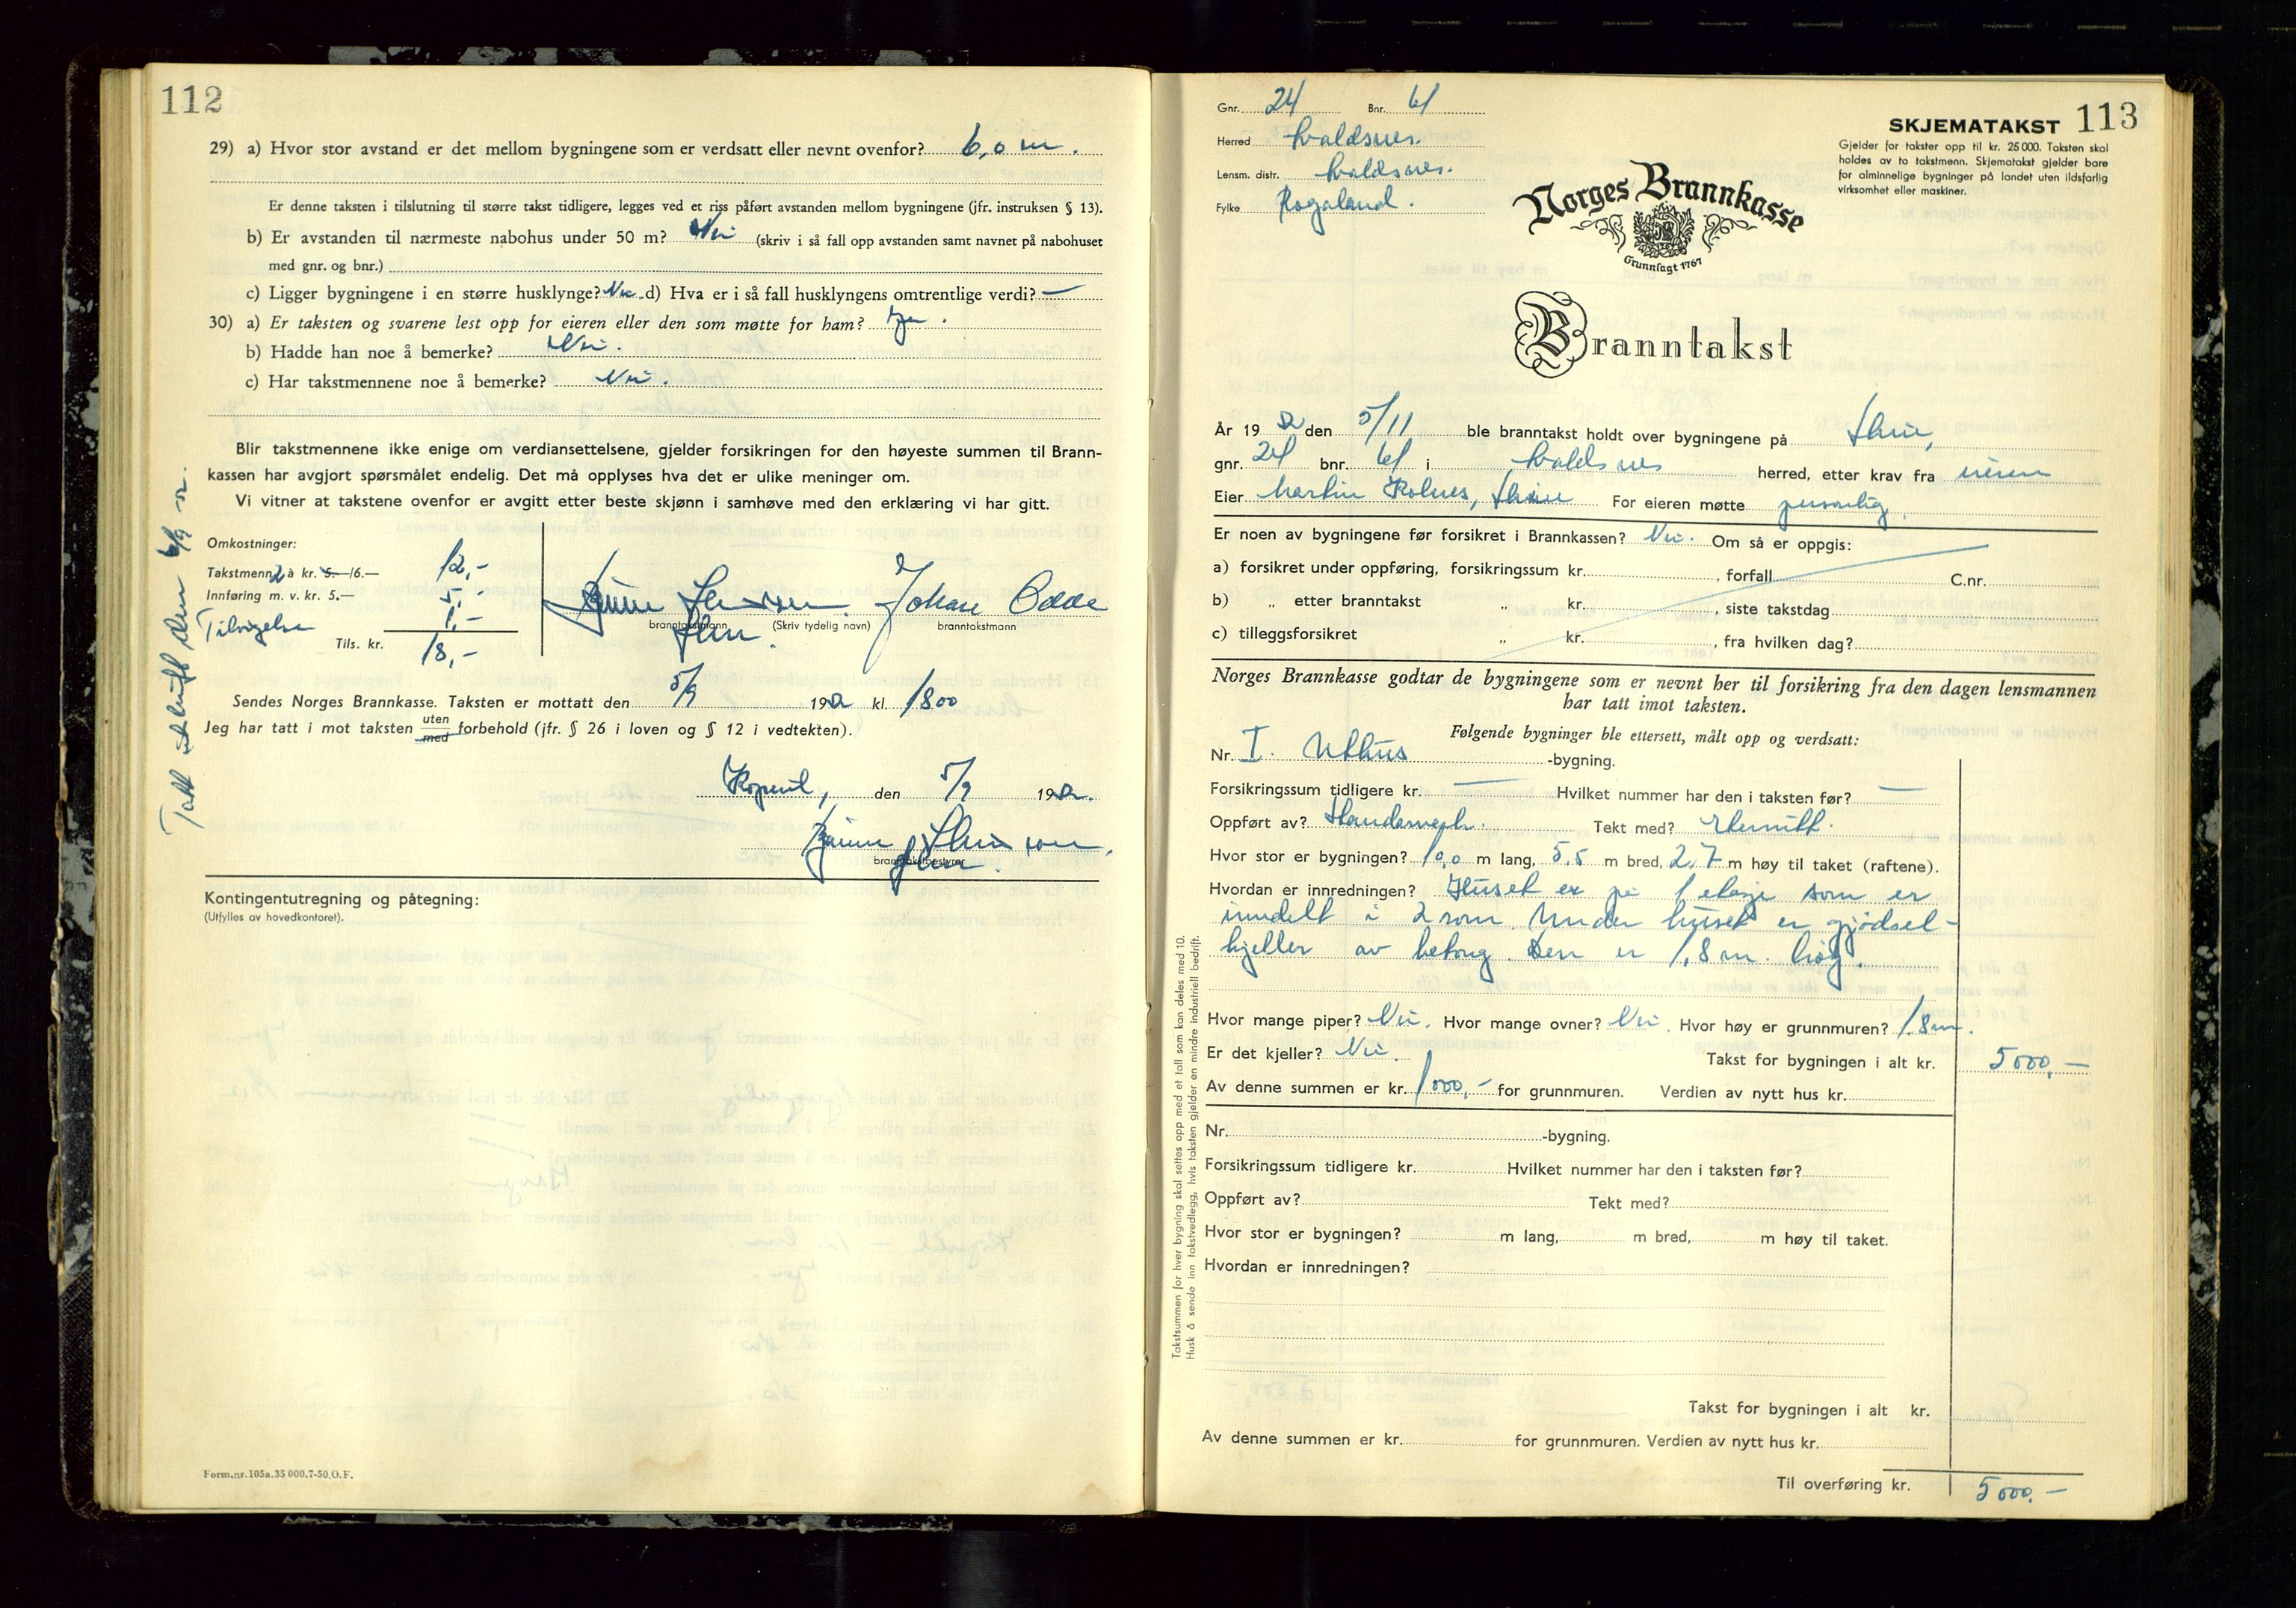 112
29) a) Hvor stor avstand er det mellom bygningene som er verdsatt eller nevnt ovenfor? 6,0 m.
Er denne taksten i tilslutning til større takst tidligere, legges ved et riss påført avstanden mellom bygningene (jfr. instruksen § 13).
b) Er avstanden til nærmeste nabohus under 50 m? Nei (skriv i så fall opp avstanden samt navnet på nabohuset
med gnr. og bnr.)
c) Ligger bygningene i en større husklynge? Nei. d) Hva er i så fall husklyngens omtrentlige verdi? —
30) a) Er taksten og svarene lest opp for eieren eller den som møtte for ham? Ja.
b) Hadde han noe å bemerke? Nei.
c) Har takstmennene noe å bemerke? Nei.
Blir takstmennene ikke enige om verdiansettelsene, gjelder forsikringen for den høyeste summen til Brann-
kassen har avgjort spørsmålet endelig. Det må opplyses hva det er ulike meninger om.
Vi vitner at takstene ovenfor er avgitt etter beste skjønn i samhøve med den erklæring vi har gitt.
Omkostninger:
Takstmenn 2 à kr. 5.—/6.— 12,-
Innføring m. v. kr. 5.— 5,-
1,-
Tils. kr. 18,-
Johan Odde
branntakstmann (Skriv tydelig navn) branntakstmann
Sendes Norges Brannkasse. Taksten er mottatt den 5/9 1952 kl. 1800
Jeg har tatt i mot taksten uten
med forbehold (jfr. § 26 i loven og § 12 i vedtekten).
Kopervik, den 5/9 1952.
branntakstbestyrer
Kontingentutregning og påtegning:
(Utfylles av hovedkontoret).
Form.nr.105a.35 000.7-50.O.F.
Tatt utskrift den 6/9 52.
113
Gnr. 24 Bnr. 61
Herred Avaldsnes.
Lensm. distr. Avaldsnes.
Fylke Rogaland.
SKJEMATAKST
Gjelder for takster opp til kr. 25 000. Taksten skal
holdes av to takstmenn. Skjematakst gjelder bare
for alminnelige bygninger på landet uten ildsfarlig
virksomhet eller maskiner.
Norges Brannkasse
Grunnlagt 1767
Branntakst
År 1952 den 5/11 ble branntakst holdt over bygningene på
gnr. 24 bnr. 61 i Avaldsnes herred, etter krav fra eieren
Eier Martin Kolnes, For eieren møtte personlig.
Er noen av bygningene før forsikret i Brannkassen? Nei. Om så er oppgis:
a) forsikret under oppføring, forsikringssum kr. , forfall C.nr.
b) „ etter branntakst „ kr. , siste takstdag
c) tilleggsforsikret „ kr. , fra hvilken dag?
Norges Brannkasse godtar de bygningene som er nevnt her til forsikring fra den dagen lensmannen
har tatt imot taksten.
Følgende bygninger ble ettersett, målt opp og verdsatt:
Nr. I. Uthus -bygning.
Forsikringssum tidligere kr. — Hvilket nummer har den i taksten før? —
Oppført av? Tekt med? Eternitt.
Hvor stor er bygningen? 10,0 m lang, 5,5 m bred, 2,7 m høy til taket (raftene).
Hvordan er innredningen? Huset er på 1 etasje som er
inndelt i 2 rom. Under huset er gjødsel-
kjeller av betong. Den er 1,8 m. høg.
Hvor mange piper? Nei. Hvor mange ovner? Nei. Hvor høy er grunnmuren? 1,8 m.
Er det kjeller? Nei. Takst for bygningen i alt kr. 5000,-
Av denne summen er kr. 1000,- for grunnmuren. Verdien av nytt hus kr.
Nr. -bygning.
Forsikringssum tidligere kr. Hvilket nummer har den i taksten før?
Oppført av? Tekt med?
Hvor stor er bygningen? m lang, m bred, m høy til taket.
Hvordan er innredningen?
Takst for bygningen i alt kr.
Av denne summen er kr. for grunnmuren. Verdien av nytt hus kr.
Til overføring kr. 5000.-
Takstsummen for hver bygning skal settes opp med et tall som kan deles med 10.
Husk å sende inn takstvedlegg, hvis taksten gjelder en mindre industriell bedrift.